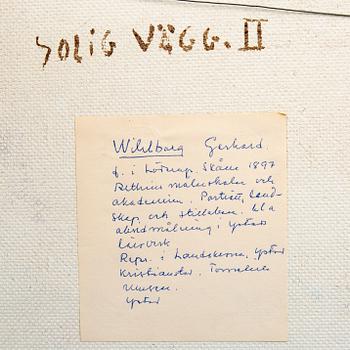 SOLIG VÄGG. II
Wihlborg Gerhard.
f. i Lödrup, Skåne 1897
Bethins målarskola och
akademien. Porträtt, Land-
skap och stilleben. Bl a
altarmålning i Ystads
läroverk
Repr. i Landskrona, Ystad
Kristianstad. Tomelilla
Museer.
Ystad